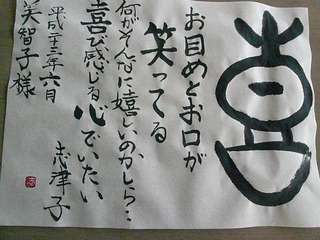 喜
お目めとお口が
笑ってる
何がそんなに嬉しいのかしら…
喜び感じる心でいたい
志津子
平成二十二年六月
美智子様